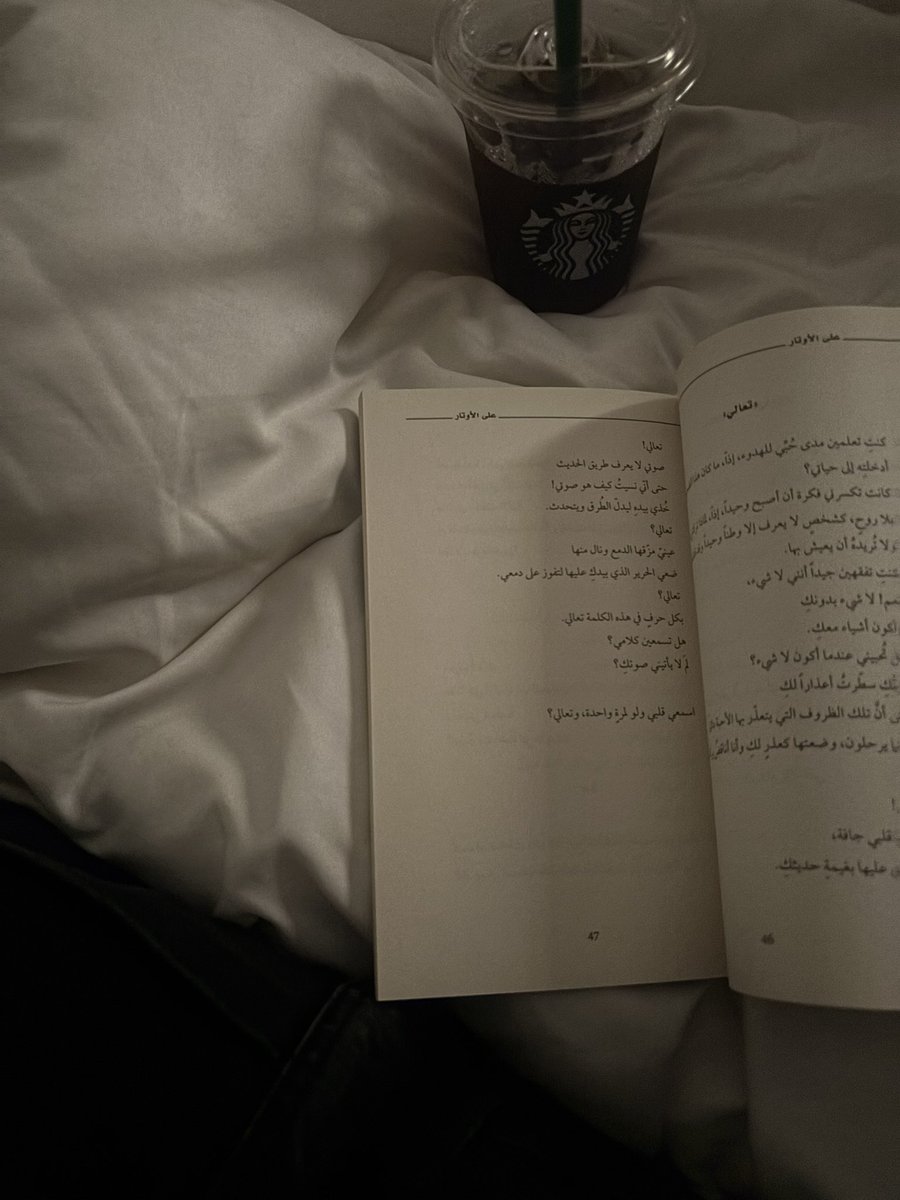 على الأوتار
«تعالي»
كنتِ تعلمين مدى حُبّي للهدوء، إذاً، ما كان هذا
أدخلتِه إلى حياتي؟
كانت تكسرني فكرة أن أصبح وحيداً، إذاً،
بلا روحٍ، كشخصٍ لا يعرف إلا وطناً وحيداً
ولا تُريدهُ أن يعيش بها.
كنتِ تفقهين جيداً أنني لا شيء،
نعم! لا شيء بدونكِ
وأكون أشياء معكِ.
تُحبيني عندما أكون لا شيء؟
سطّرتُ أعذاراً لكِ
أنَّ تلك الظروف التي يتعذّر بها
يرحلون، وضعتها كعذرٍ لكِ وأنا
قلبي جافة،
عليها بغيمةِ حديثكِ.
46
على الأوتار
تعالي!
صوتي لا يعرف طريق الحديث
حتى أنّي نسيتُ كيف هو صوتي!
خُذي بيدهِ ليدلّ الطُرق ويتحدث.
تعالي؟
عينيّ مزّقها الدمع ونال منها
ضعي الحرير الذي بيدكِ عليها لتفوز على دمعي.
تعالي؟
بكل حرفٍ في هذه الكلمة تعالي.
هل تسمعين كلامي؟
لمَ لا يأتيني صوتكِ؟
اسمعي قلبي ولو لمرةٍ واحدة، وتعالي؟
47